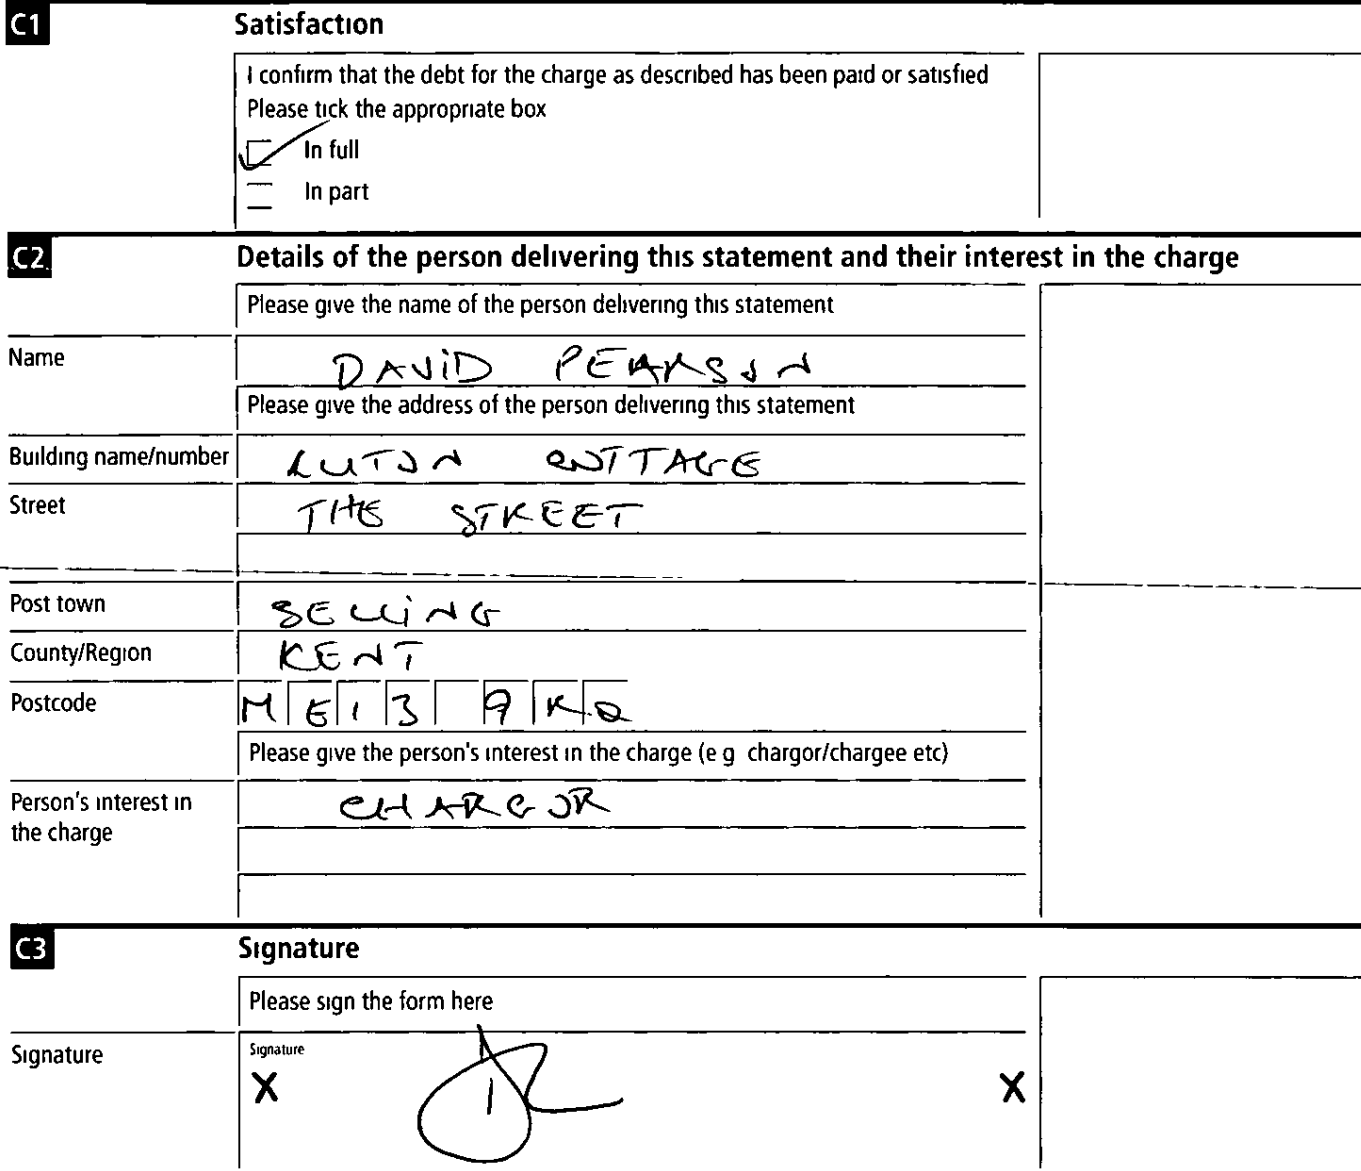 C1 Satisfaction
I confirm that the debt for the charge as described has been paid or satisfied
Please tick the appropriate box
In full
In part
C2 Details of the person delivering this statement and their interest in the charge
Please give the name of the person delivering this statement
Name DAVID PEARSON
Please give the address of the person delivering this statement
Building name/number LUTON COTTAGE
Street THE STREET
Post town SELLING
County/Region KENT
Postcode ME13 9RQ
Please give the person's interest in the charge (e g chargor/chargee etc)
Person's interest in CHARGOR
the charge
C3 Signature
Please sign the form here
Signature Signature
X X